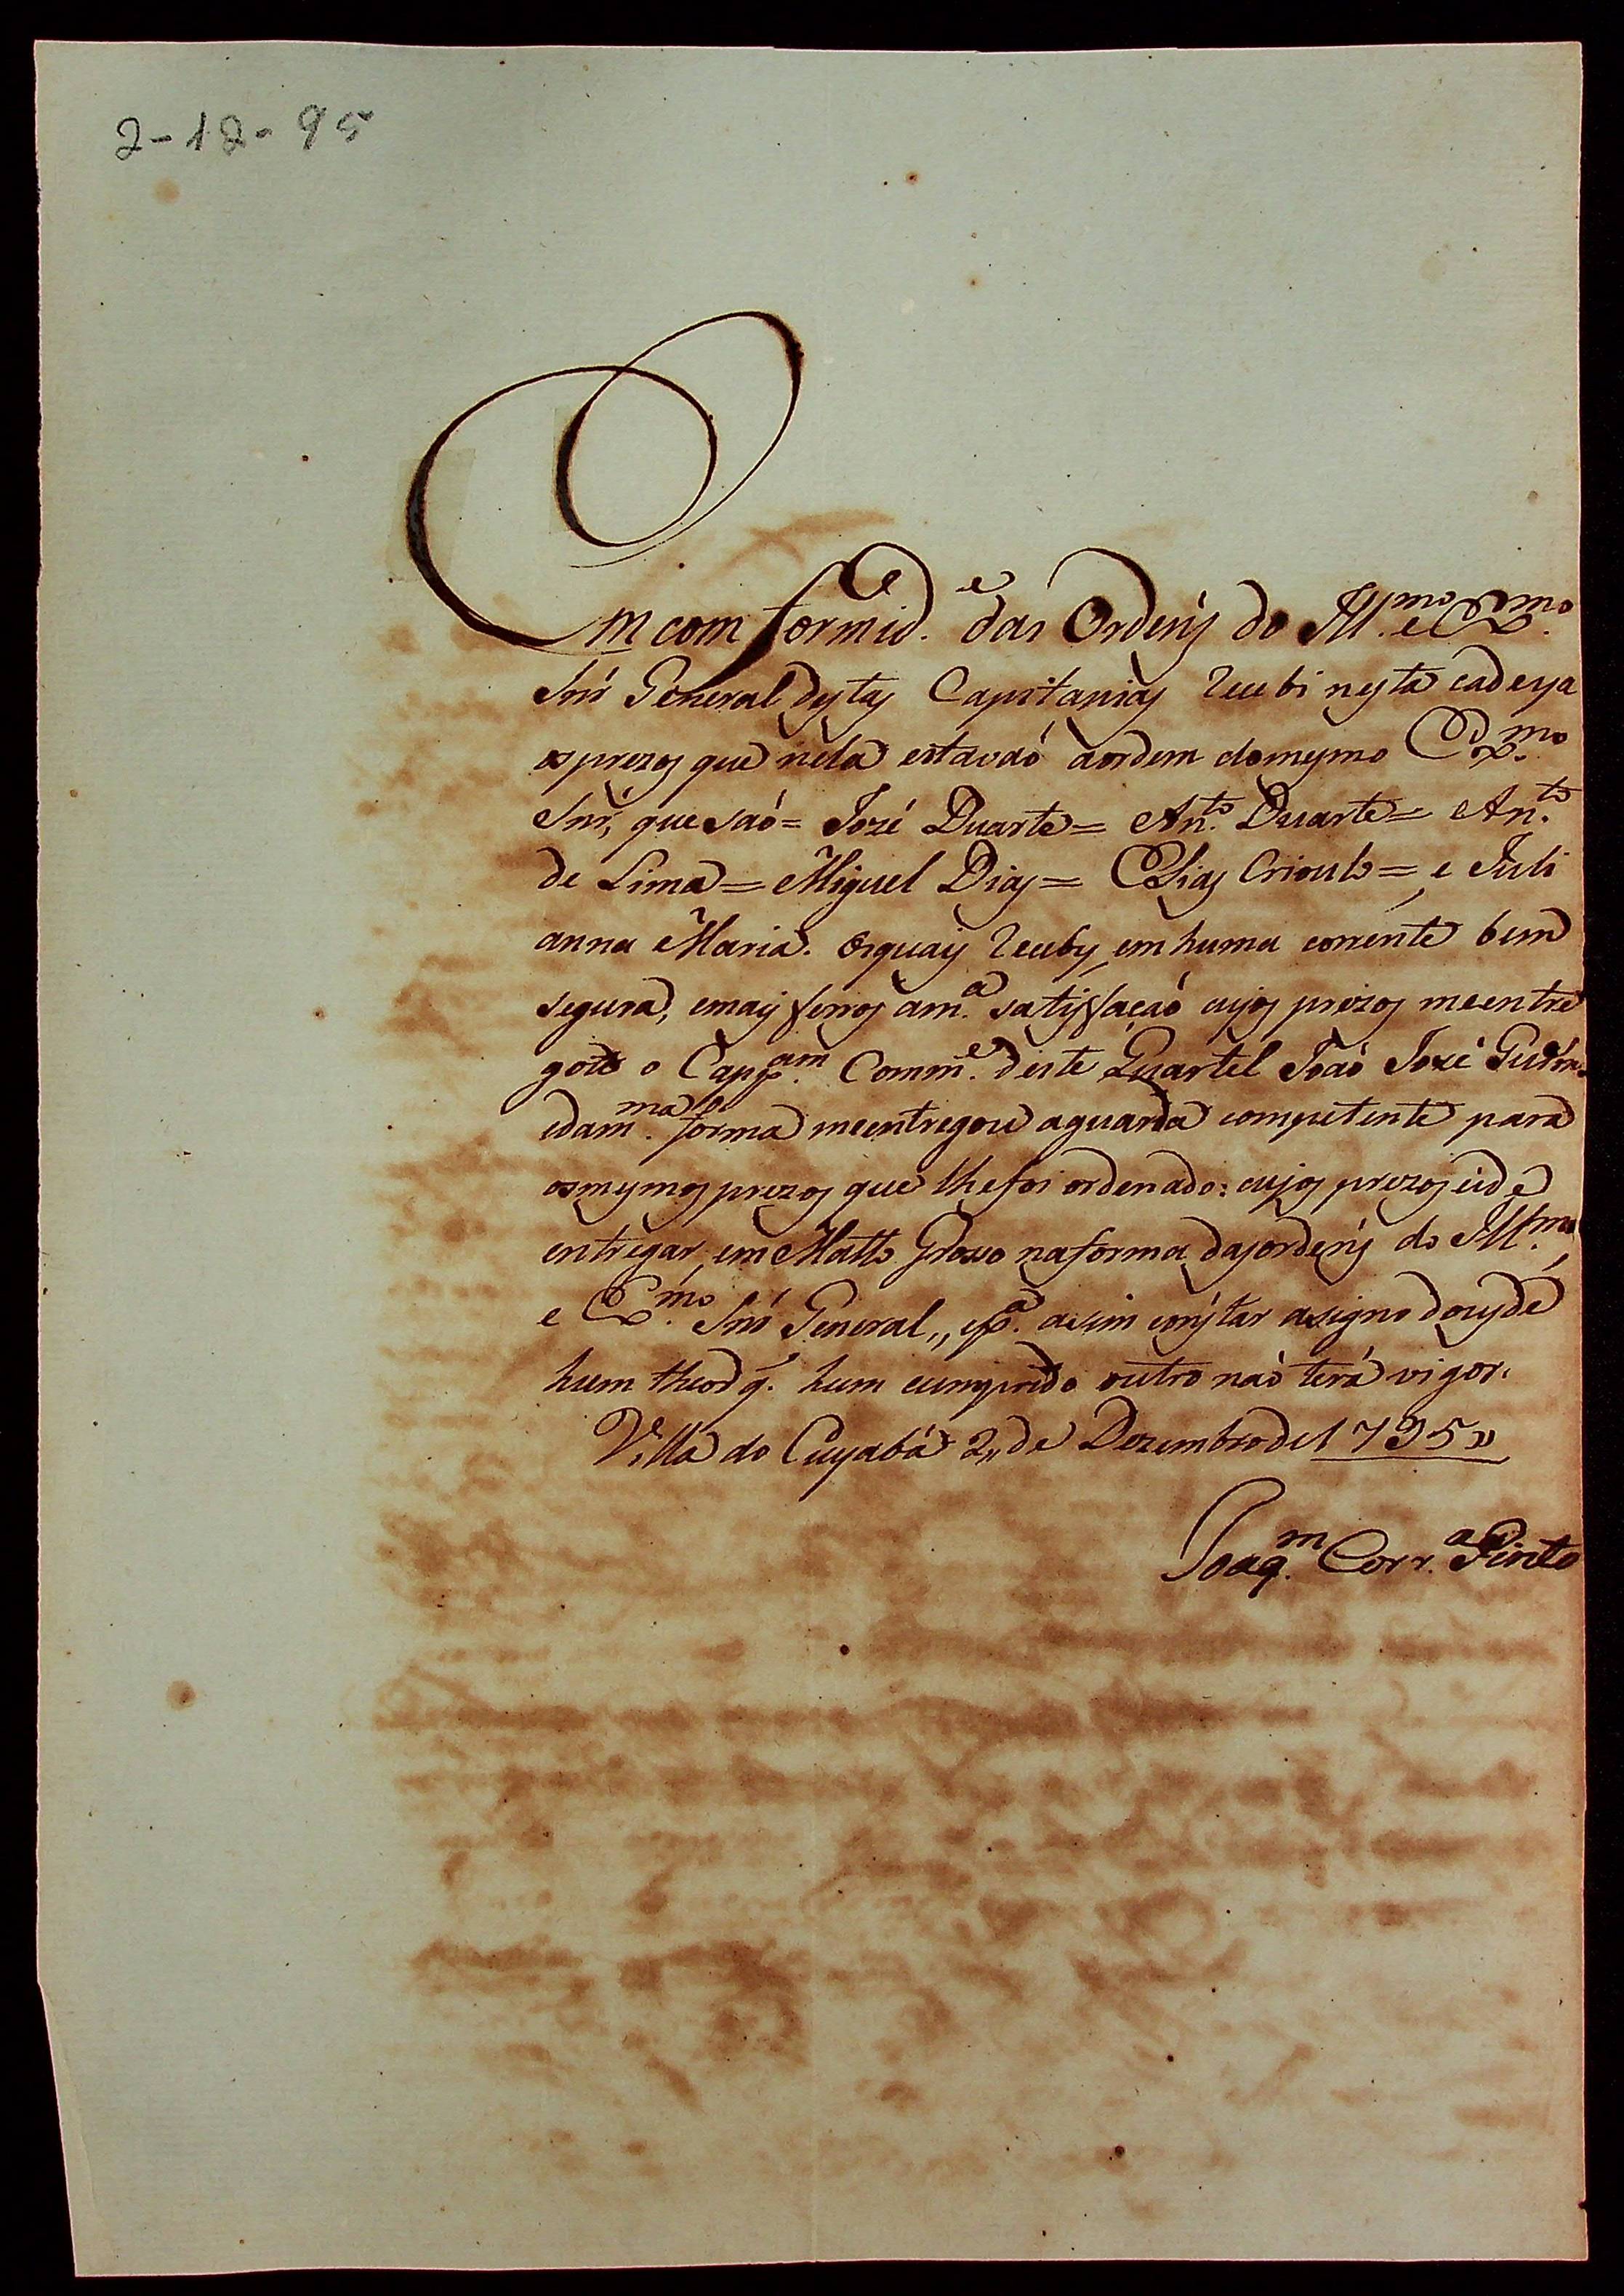 2-12-95
Em comformid.e das Ordens do Ill.mo e Ex.mo
Snr̃ General destas Capitanias recebi nesta cadeya
os prezos que nela estavaó aordem domesmo Ex.mo
Snr̃, que saó= Jozé Duarte= An.to Duarte= An.to
de Lima= Miguel Dias= Elias Crioulo=, e Juli
anna Maria. Osquais receby em huma corrente bem
segura, emais ferros am.a satisfaçaó cujos prezos meentre
gou o Capp.am Comm.e deste Quartel Joaó Jozé
edam.ma forma meentregou aguarda competente para
osmesmos prezos que lhefoi ordenado: cujos prezos eide
entregar em Matto Grosso naforma dasordens do Ill.mo
e Ex.mo Snr̃ General,, ep.a asim constar asigno douysde
hum theor q̃. hum cumprido outro naó terá vigor.
Villa do Cuyabá 2,, de Dezembro de 1795,,
Joaq.m Corr.a Pinto